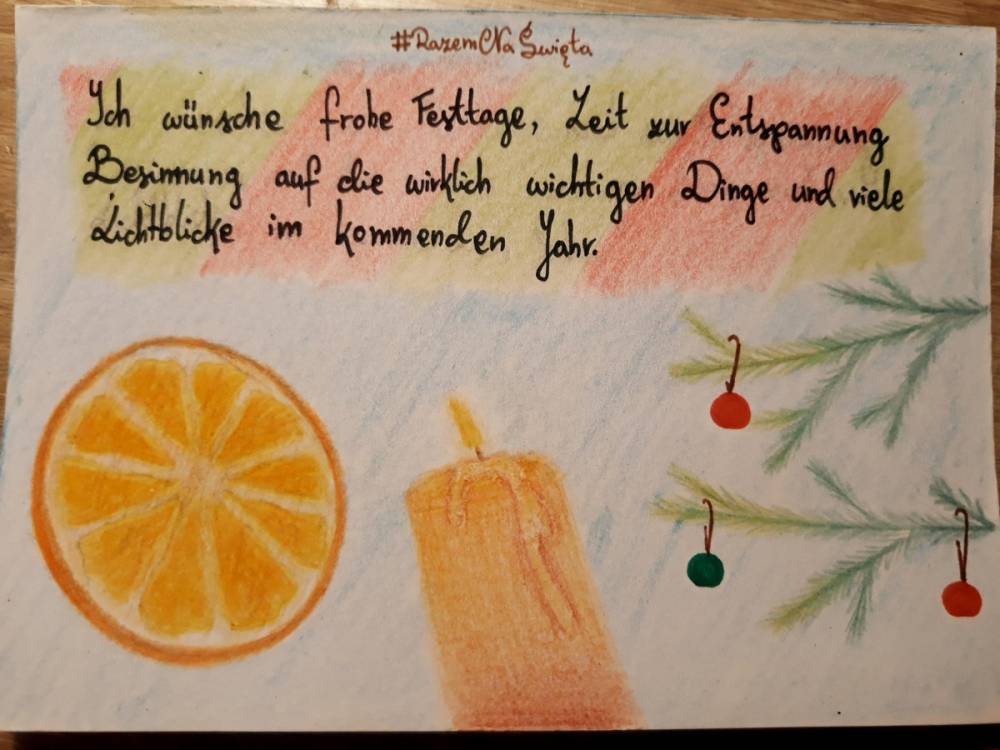 #RazemNaŚwięta
Ich wünsche frohe Festtage, Zeit zur Entspannung
Besinnung auf die wirklich wichtigen Dinge und viele
Lichtblicke im kommenden Jahr.